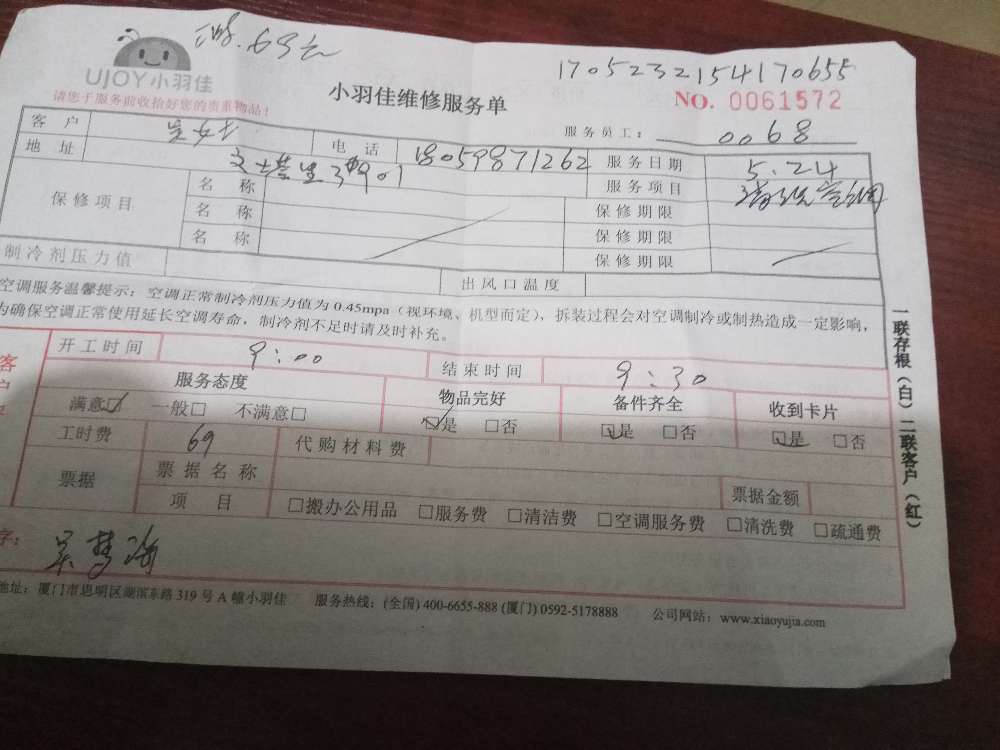 69元
17052321541706​55
UJOY小羽佳
请您于服务前收拾好您的贵重物品！
小羽佳维修服务单
NO. 0061572
服务员工： 0068
客 户 吴女士 电 话 18059871262 服务日期 5.24
地 址 服务项目 清洗空调
保修项目 名 称 保修期限
名 称 保修期限
名 称 保修期限
制冷剂压力值 出风口温度
空调服务温馨提示：空调正常制冷剂压力值为 0.45mpa（视环境、机型而定），拆装过程会对空调制冷或制热造成一定影响，
为确保空调正常使用延长空调寿命，制冷剂不足时请及时补充。
开工时间 9:00 结束时间 9:30
服务态度 物品完好 备件齐全 收到卡片
满意☑ 一般□ 不满意□ ☑是 □否 ☑是 □否 ☑是 □否
工时费 69 代购材料费
票据 票据名称 票据金额
项 目 □搬办公用品 □服务费 □清洁费 □空调服务费 □清洗费 □疏通费
字： 吴梦海
地址：厦门市思明区湖滨东路 319 号 A 幢小羽佳 服务热线：(全国) 400-6655-888 (厦门) 0592-5178888 公司网站：www.xiaoyujia.com
一联存根（白）二联客户（红）